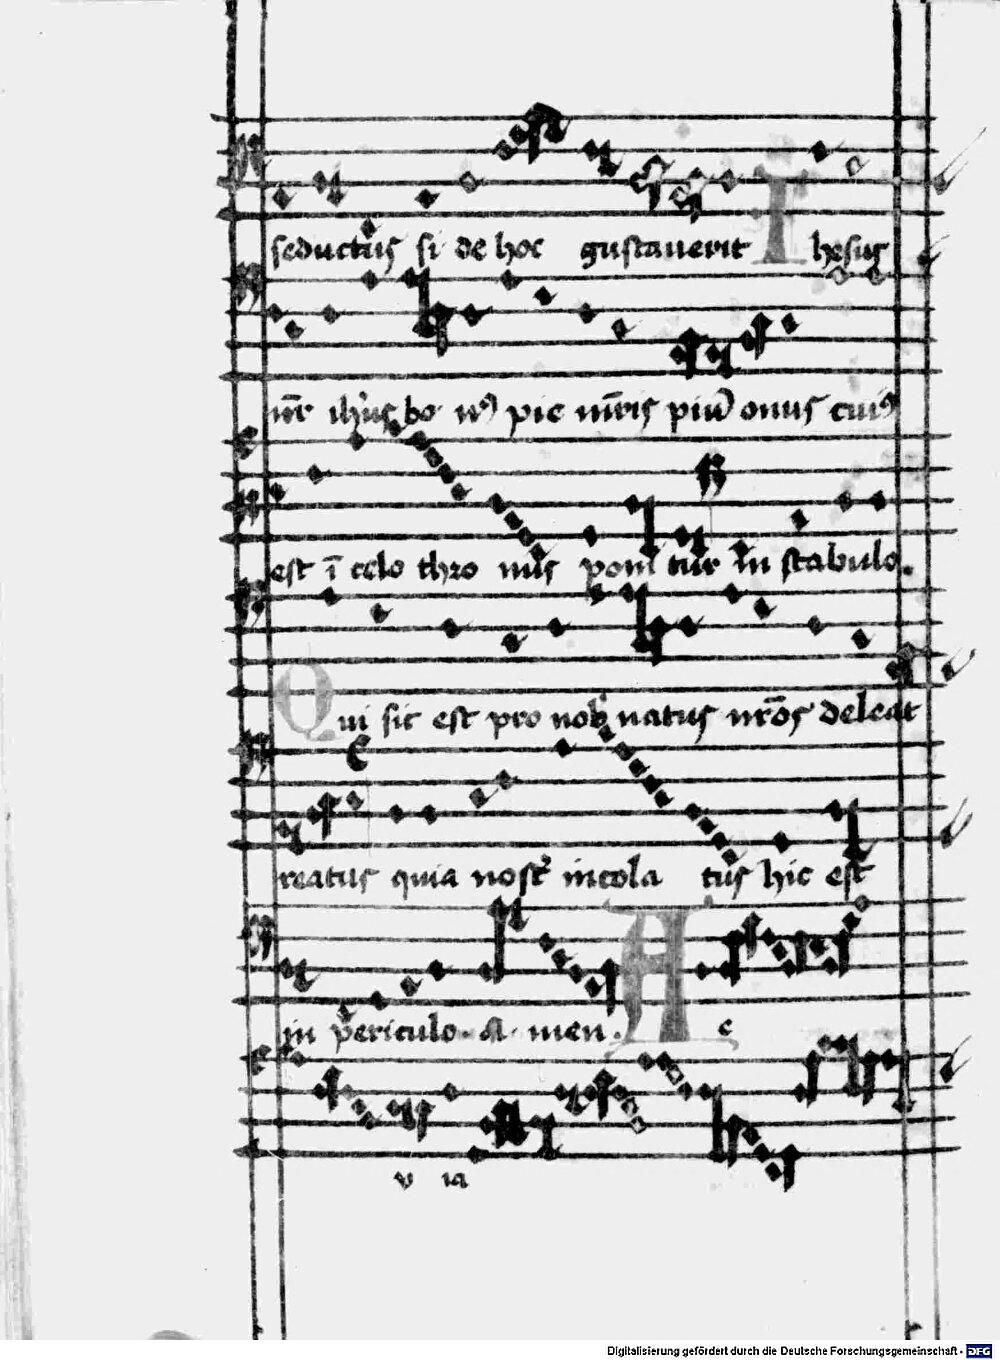 seductus si de hoc gustauerit Ihesus
nr̄ ihus bo pie mr̄is piu onus cuiꝰ
est ī celo thro nus poni tur in stabulo.
Qui sic est pro nob natus nr̄os deleat
reatus quia nost incola tus hic est
in periculo. a men. A e
v ia
Digitalisierung gefördert durch die Deutsche Forschungsgemeinschaft - DFG